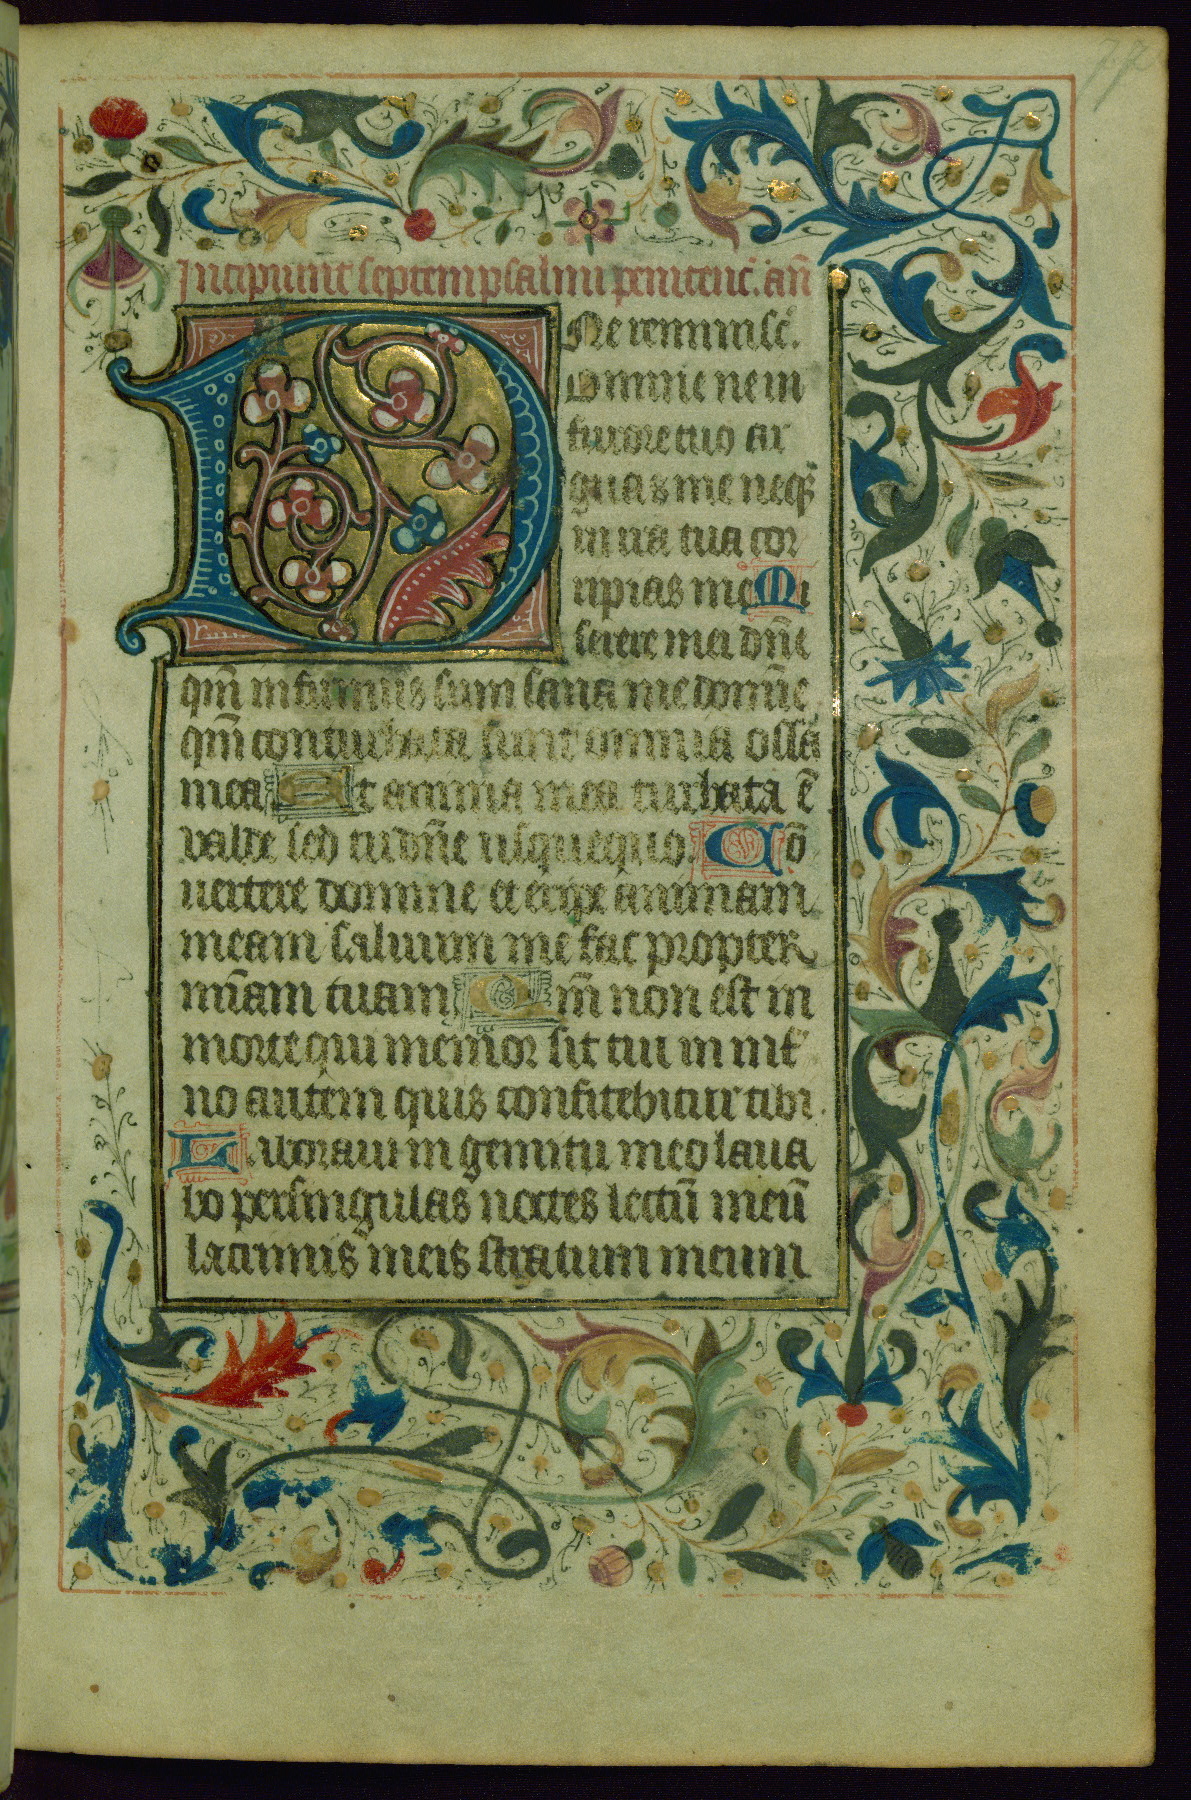 77
Incipiunt septem psalmi penitenc̄. an̄
Ne reminisc̄.
Domine ne in
furore tuo ar
guas me neqꝫ
in ira tua cor
ripias me Mi
serere mei dn̄e
qm̄ infirmus sum sana me domīe
qm̄ conturbata sunt omnia ossa
mea Et anima mea turbata ē
valde sed tu dn̄e usquequo. Cō
uertere domine et eripe animam
meam saluum me fac propter
mīam tuam Qm̄ non est in
morte qui memor sit tui in inf
no autem quis confitebitur tibi.
Laboraui in gemitu meo laua
bo per singulas noctes lectū meū
lacrimis meis stratum meum